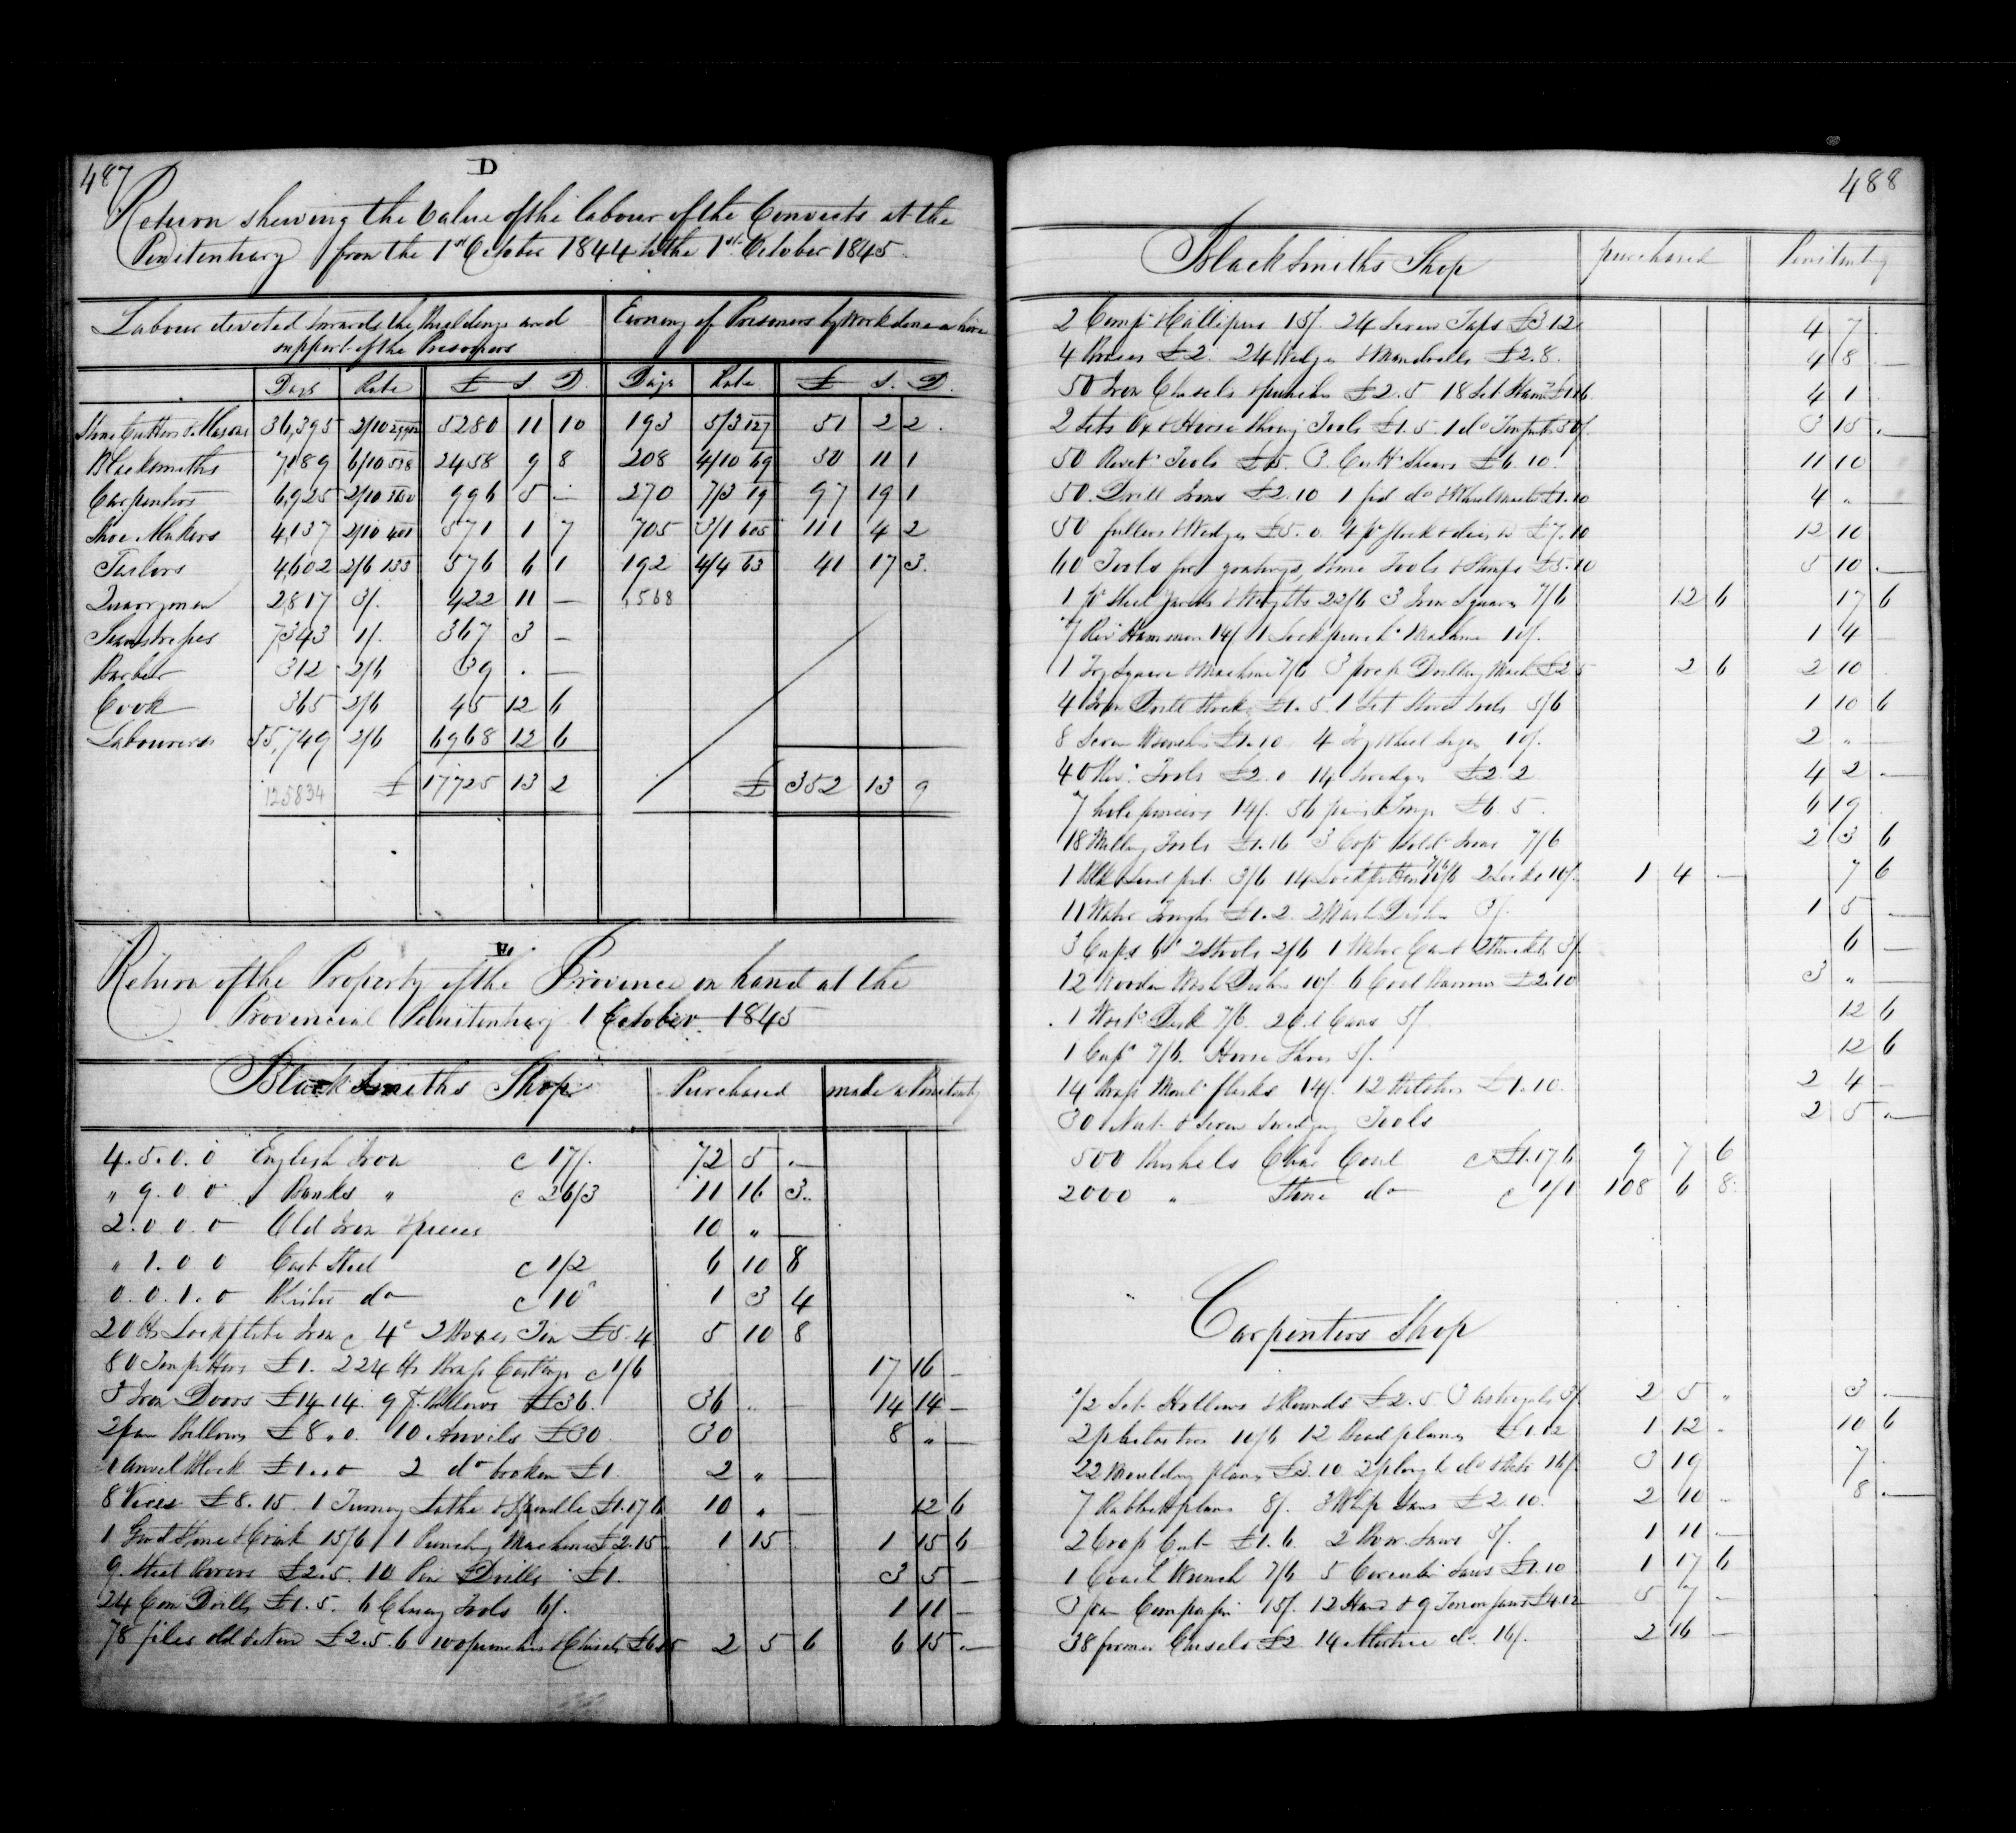 487
D
Return shewing the Value of the labour of the Convicts at the
Penitentiary from the 1st October 1844 to the 1st October 1845.
Labour devoted towards the Buildings and support of the Prisoners
Earning of Prisoners by Work done
Days Rate £ S D. Days Rate £ S. D.
Stone Cutters & Masons 36,395 2/10 5280 11 10 193 5/3 51 2 2.
Blacksmiths 7,189 6/10 2458 9 8 208 4/10 50 11 1
Carpenters 6,925 2/10 996 5 — 270 7/3 97 19 1
Shoe Makers 4,137 2/10 571 1 7 705 3/1 111 4 2
Tailors 4,602 2/6 576 6 1 192 4/4 41 17 3.
Quarrymen 2,817 3/. 422 11 — 1,568
Seamstresses 7,343 1/. 367 3 —
Barber 312 2/6 39 . —
Cook 365 2/6 45 12 6
Labourers 55,749 2/6 6968 12 6
125834 £ 17725 13 2 £ 352 13 9
E
Return of the Property of the Province on hand at the
Provincial Penitentiary 1 October 1845
Blacksmiths Shop Purchased made a Penitenty
4. 5. 0. 0 English Iron c 17/. 72 5 . —
" 9. 0 0 Banks " c 26/3 11 16 3..
2. 0. 0. 0 Old Iron & pieces 10 " —
" 1. 0 0 Cast Steel c 1/2 6 10 8
0. 0. 1. 0 Blister do c 10 1 3 4
20 lbs Lockplate Iron c 4 2 Boxes Tin £5. 4 5 10 8
80 £1. 224 lbs Brass Castings c 1/6 17 16 —
3 Iron Doors £14 14. 9 Bellows £36. 36 .. — 14 14 —
2 pair Bellows £8 " 0. 10 Anvils £30 30 8 " —
1 Anvil Block £1. .. 0 2 do broken £1. 2 " —
8 Vices £8. 15. 1 Turning Lathe & Spindle £1. 17 6 10 " — 12 6
1 Grind Stone & Crank 15/6 1 Punching Machine £2. 15 1 15 1 15 6
9. Steel Borers £2. 5. 10 Pin Drills £1. 3 5 —
24 Com Drills £1. 5. 6 Chasing Tools 6/. 1 11 —
78 files old & new £2. 5. 6 100 punches & Chisels £6. 15 2 5 6 6 15 . —
488
Blacksmiths Shop purchased Penitenty
2 Comps & Callipers 15/. 24 Screw Taps £3 12 4 7 .
4 Braces £2. 24 Wedges & Mandrells £2. 8. 4 8 . —
50 Iron Chisels & punches £2. 5 18 Set Hamrs £1.16 4 1 .
2 Sets Ox & Horse Shoeing Tools £1. 5. 1 do 50/. 3 15 . —
50 Rivetg Tools £5. 3. Shears £6. 10. 11 10
50. Drill Irons £2. 10 1 do £1. 10 4 "
50 fullers & Wedges £5. 0. 4 pr Stock & dies £7. 10 12 10
60 Tools for gratings, Stone Tools & Stamps £5. 10 5 10 . —
1 pr Steel yards & Weights 22/6 3 Iron Squares 7/6 12 6 17 6
7 Rivg Hammers 14/ 1 Lock punchg Machine 10/. 1 4 —
1 Square & Machine 7/6 3 Drilling Mach £2 5 2 6 2 10 .
4 Iron £1. 5. 1 Set Stove tools 5/6 1 10 6
8 Screw Wrenches £1. 10 4 Wheel 10/. 2 " —
40 Rivg Tools £2. 0 14 Swedges £2. 2 4 2 . —
7 14/. 56 pairs Tongs £6. 5. 6 19 .
18 Milling Tools £1. 16 3 Irons 7/6 2 3 6
1 3/6 14 2 Locks 10/. 1 4 — 7 6
11 Water Troughs £1. 2. 2 Wash Dishes 3/. 1 5 . —
3 Cups 6d 2 Stools 2/6 1 Water Can & 3/. 6 —
12 Wooden Wash Dishes 10/. 6 Coal Barrows £2. 10 3 " —
1 Desk 7/6. 2 Oil Cans 5/. 12 6
1 7/6. Horse Shoes 5/. 12 6
14 Brass Mould flasks 14/. 12 £1. 10. 2 4 —
30 Nut & Screw Swedging Tools 2 5 . —
500 Bushels Char Coal c £1. 17 6 9 7 6
2000 " Stone do c 1/1 108 6 8.
Carpenters Shop
1/2 Set Hollows & Rounds £2. 5. 3 Astragals 3/. 2 5 " 3 . —
2 10/6 12 Bead planes £1. 12 1 12 . 10 6
22 Moulding planes £3. 10. 2 do 16/. 3 19 7 .
7 Rabbet planes 8/. 3 Whip Saws £2 10. 2 10 . 8 . —
2 Crop Cut £1. 6. 2 Bow Saws 5/. 1 11 —
1 Coach Wrench 7/6 5 Circular Saws £1. 10 1 17 6
3 pair Compasses 15/. 12 Hand & 9 Tenon Saws £4. 12 5 7 —
38 former Chisels £2 14 Mortice do. 16/. 2 16 —